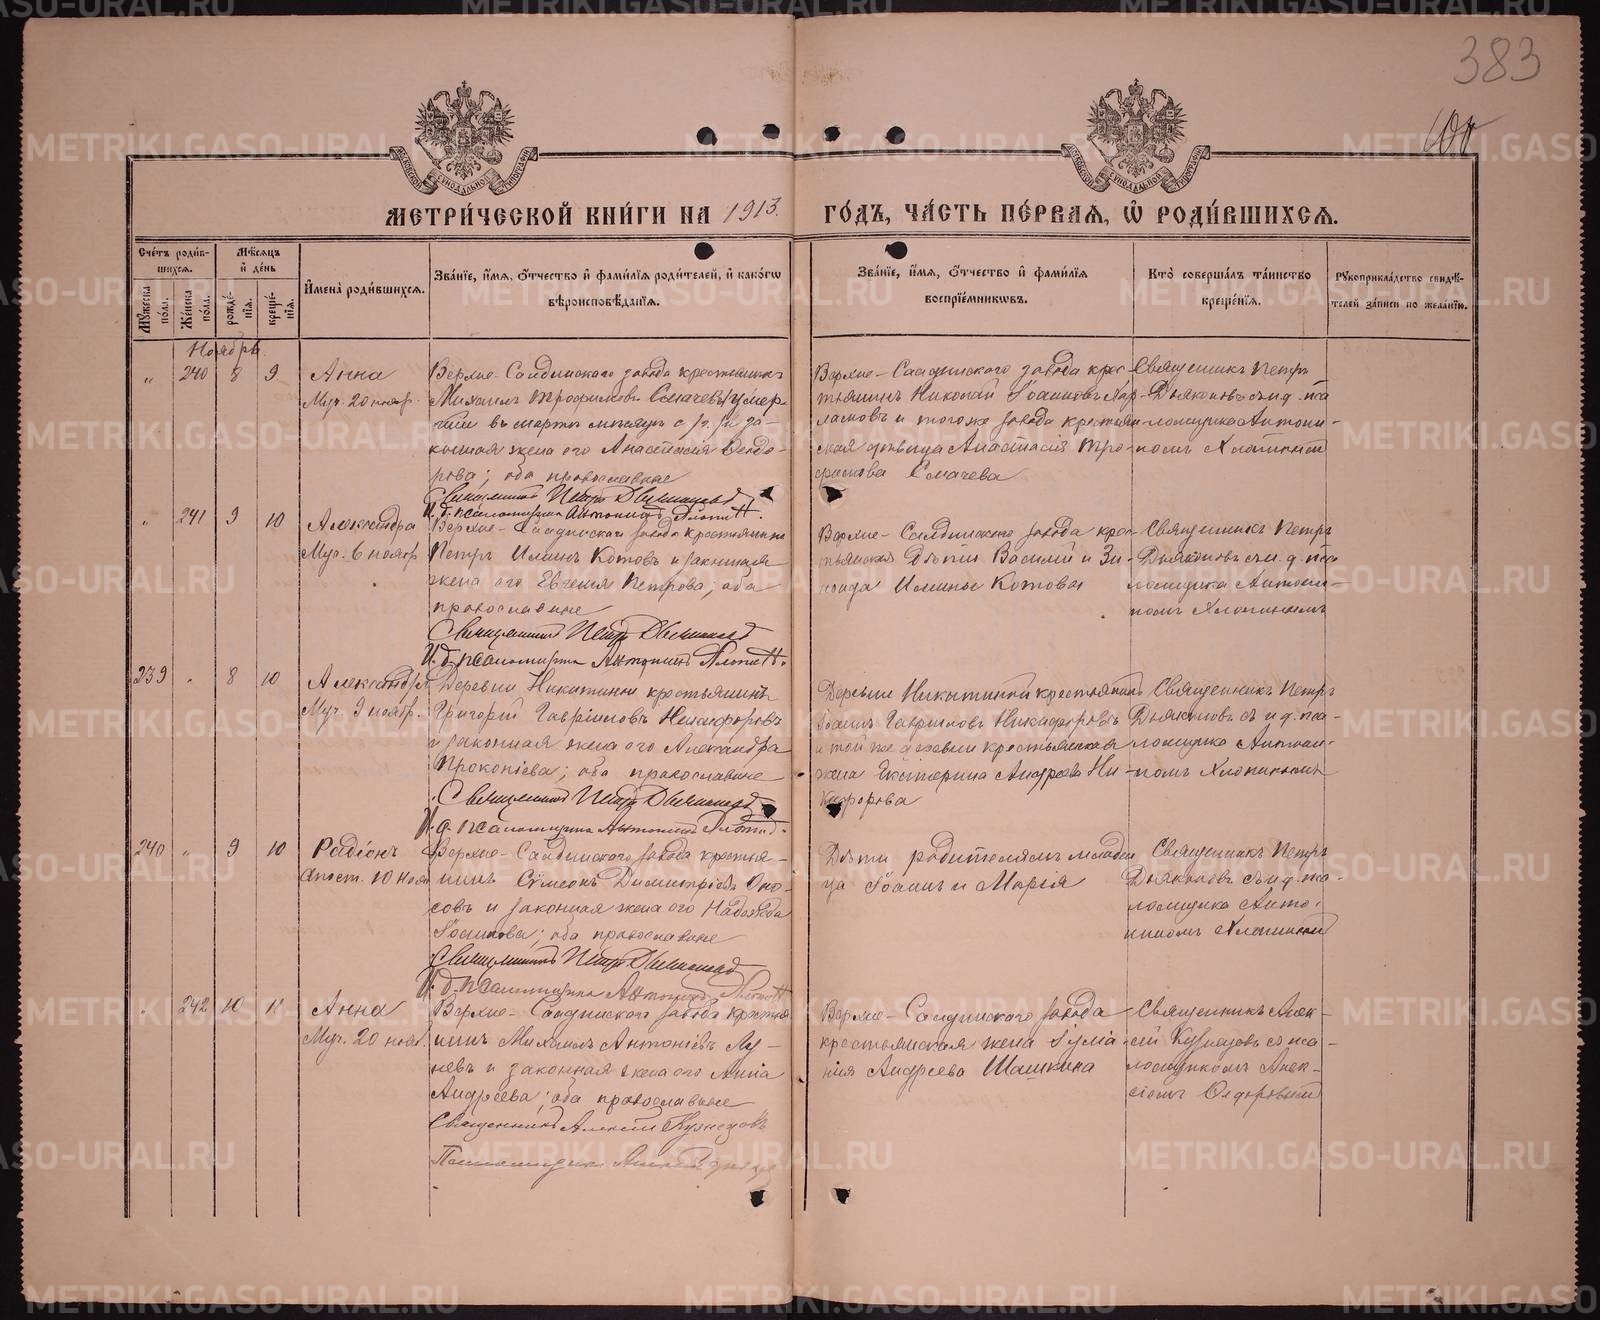 383
МЕТРИ́ЧЕСКОЙ КНИ́ГИ НА 1913.
ГО́ДЪ, ЧА́СТЬ ПЕ́РВАЯ, Ѡ҆ РОДИ́ВШИХСЯ.
МОСКОВСКОЙ СѴНОДАЛЬНОЙ ТИПОГРАФІИ
МОСКОВСКОЙ СѴНОДАЛЬНОЙ ТИПОГРАФІИ
Сче́тъ роди́в-
шихся.
Му́жеска по́ла.
Же́нска по́ла.
Мѣ́сяцъ
и҆ де́нь
рожде́-
нїя.
креще́-
нїя.
И҆мена̀ роди́вшихся.
Зва́нїе, и҆́мя, ѻ҆́тчество и҆ фами́лїя роди́телей, и҆ како́гѡ
вѣроисповѣ́данїя.
Зва́нїе, и҆́мя, ѻ҆́тчество и҆ фами́лїя
воспрїе́мникѡвъ.
Кто̀ соверша́лъ та́инство
креще́нїя.
Рꙋкоприкла́дство свидѣ́-
телей за́писи по жела́нїю.
Ноябрь
„ 240 8 9 Анна
Муч. 20 ноябр.
Верхне-Салдинского завода крестьянинъ
Михаилъ Трофимовъ Смачевъ (умер-
шій въ мартѣ мѣсяцѣ с. г.) и за-
конная жена его Анастасія Ѳеодо-
рова; оба православные
Священникъ Петръ Дьяконовъ
И. д. псаломщика Антонинъ Хлопинъ.
Верхне-Салдинского завода крес-
тьянинъ Николай Іоанновъ Вар-
ламовъ и того же завода крестьян-
ская дѣвица Анастасія Тро-
фимова Смачева
Священникъ Петръ
Дьяконовъ съ и. д. пса-
ломщика Антони-
номъ Хлопинымъ
„ 241 9 10 Александра
Муч. 6 ноябр.
Верхне-Салдинского завода крестьянинъ
Петръ Илiинъ Котовъ и законная
жена его Евгенія Петрова, оба
православные
Священникъ Петръ Дьяконовъ
И. д. псаломщика Антонинъ Хлопинъ.
Верхне-Салдинского завода крес-
тьянскія дѣти Василій и Зи-
наида Илiины Котовы
Священникъ Петръ
Дьяконовъ съ и. д. пса-
ломщика Антони-
номъ Хлопинымъ
239 „ 8 10 Александръ
Муч. 9 ноябр.
Деревни Никитиной крестьянинъ
Григорій Гавріиловъ Никифоровъ
и законная жена его Александра
Прокопіева; оба православные
Священникъ Петръ Дьяконовъ
И. д. псаломщика Антонинъ Хлопинъ.
Деревни Никитиной крестьянинъ
Іоаннъ Гавріиловъ Никифоровъ
и той же деревни крестьянская
жена Екатерина Андреева Ни-
кифорова
Священникъ Петръ
Дьяконовъ съ и. д. пса-
ломщика Антони-
номъ Хлопинымъ
240 „ 9 10 Родіонъ
Апост. 10 нояб.
Верхне-Салдинского завода крестья-
нинъ Сѵмеонъ Димитріевъ
и законная жена его Надежда
Іосифова; оба православные
Священникъ Петръ Дьяконовъ
И. д. псаломщика Антонинъ Хлопинъ
Дѣти родителямъ младен-
ца Іоаннъ и Марія
Священникъ Петръ
Дьяконовъ съ и. д. пса-
ломщика Анто-
ниномъ Хлопинымъ
„ 242 10 11 Анна
Муч. 20 нояб.
Верхне-Салдинского завода крестья-
нинъ Михаилъ Антоніевъ Лу-
невъ и законная жена его Анна
Андреева; оба православные
Священникъ Алексій Кузнецовъ
Псаломщикъ
Верхне-Салдинского завода
крестьянская жена Іуліа-
нія Андреева Шашкина
Священникъ Алек-
сій Кузнецовъ съ пса-
ломщикомъ Алек-
сіемъ
METRIKI.GASO-URAL.RU